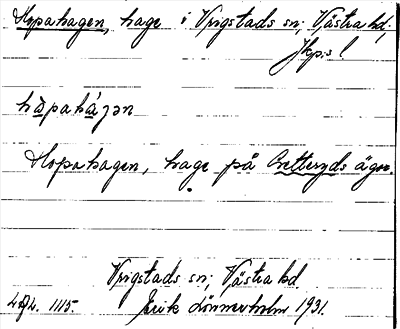 Hopahagen, hage i Vrigstads sn; Västra hd,
Jkp.s l
hòpahá̱ɡən
Hopahagen, hage på Bretteryds ägor.
Vrigstads sn; Västra hd.
1115. Erik Lönnerholm 1931.